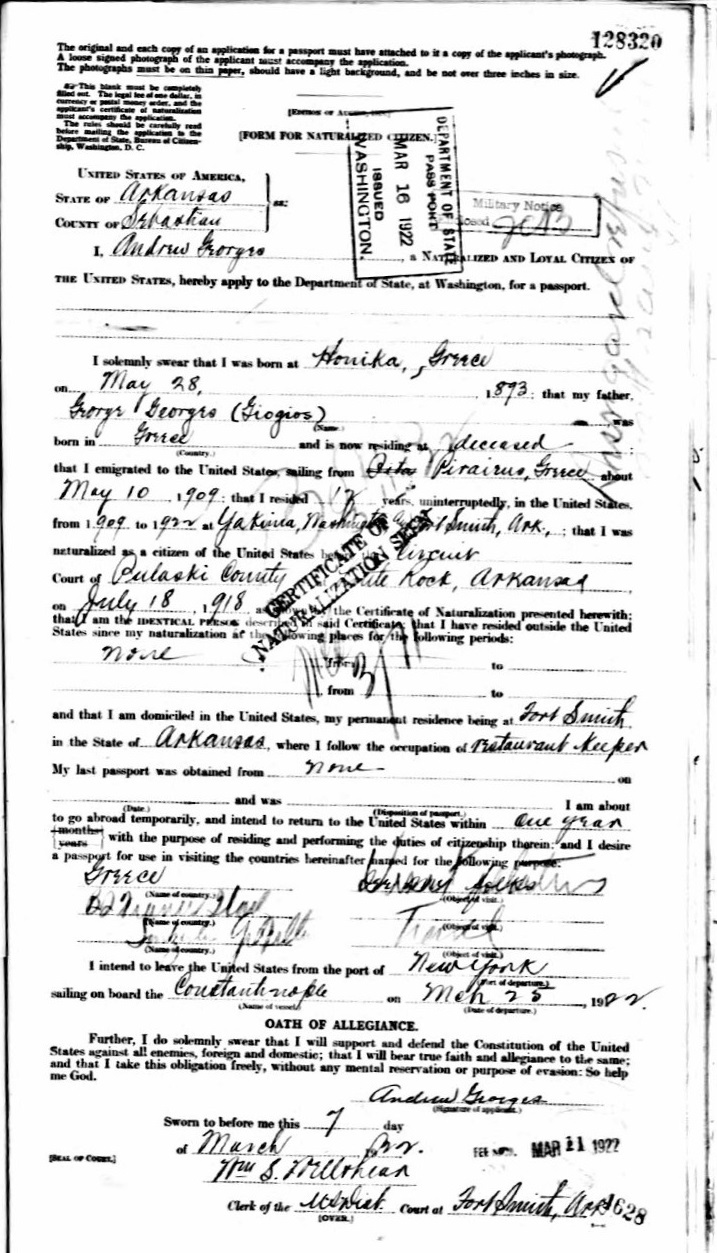 128320
The original and each copy of an application for a passport must have attached to it a copy of the applicant's photograph.
A loose signed photograph of the applicant must accompany the application.
The photographs must be on thin paper, should have a light background, and be not over three inches in size.
This blank must be completely
filled out. The legal fee of one dollar, in
currency or postal money order, and the
applicant's certificate of naturalization
must accompany the application.
The rules should be carefully read
before mailing the application to the
Department of State, Bureau of Citizen-
ship, Washington, D. C.
[FORM FOR NATURALIZED CITIZEN.]
DEPARTMENT OF STATE
PASSPORT
MAR 16 1922
ISSUED
WASHINGTON.
Military Notice
UNITED STATES OF AMERICA,
STATE OF Arkansas
COUNTY OF Sebastian
ss:
I, Andrew Georges, a NATURALIZED AND LOYAL CITIZEN OF
THE UNITED STATES, hereby apply to the Department of State, at Washington, for a passport.
I solemnly swear that I was born at Honika, Greece
on May 28, 1893; that my father,
George Georges (Giogios) was
(Name.)
born in Greece and is now residing at deceased;
(Country.)
that I emigrated to the United States, sailing from Pirairus, Greece about
May 10, 1909; that I resided years, uninterruptedly, in the United States,
from 1909 to 1922 at Yakima, Washington Fort Smith, Ark.,; that I was
naturalized as a citizen of the United States before the Circuit
Court of Pulaski County Little Rock, Arkansas
on July 18, 1918, as shown by the Certificate of Naturalization presented herewith;
CERTIFICATE OF
NATURALIZATION SEEN
that I am the IDENTICAL PERSON described in said Certificate; that I have resided outside the United
States since my naturalization at the following places for the following periods:
none from to
, from to
and that I am domiciled in the United States, my permanent residence being at Fort Smith
in the State of Arkansas, where I follow the occupation of restaurant keeper
My last passport was obtained from none on
and was I am about
(Date.) (Disposition of passport.)
to go abroad temporarily, and intend to return to the United States within one year
{months
years} with the purpose of residing and performing the duties of citizenship therein; and I desire
a passport for use in visiting the countries hereinafter named for the following purpose:
Greece
(Name of country.) (Object of visit.)
(Name of country.) (Object of visit.)
Travel
(Name of country.) (Object of visit.)
I intend to leave the United States from the port of New York
(Port of departure.)
sailing on board the Constantinople on Mch 25, 1922.
(Name of vessel.) (Date of departure.)
OATH OF ALLEGIANCE.
Further, I do solemnly swear that I will support and defend the Constitution of the United
States against all enemies, foreign and domestic; that I will bear true faith and allegiance to the same;
and that I take this obligation freely, without any mental reservation or purpose of evasion: So help
me God.
Andrew Georges
(Signature of applicant.)
Sworn to before me this 7 day
of March 1922.
FEE MAR 11 1922
[SEAL OF COURT.]
Wm S. Wellshear
Clerk of the US Dist. Court at Fort Smith, Ark
1628
[OVER.]